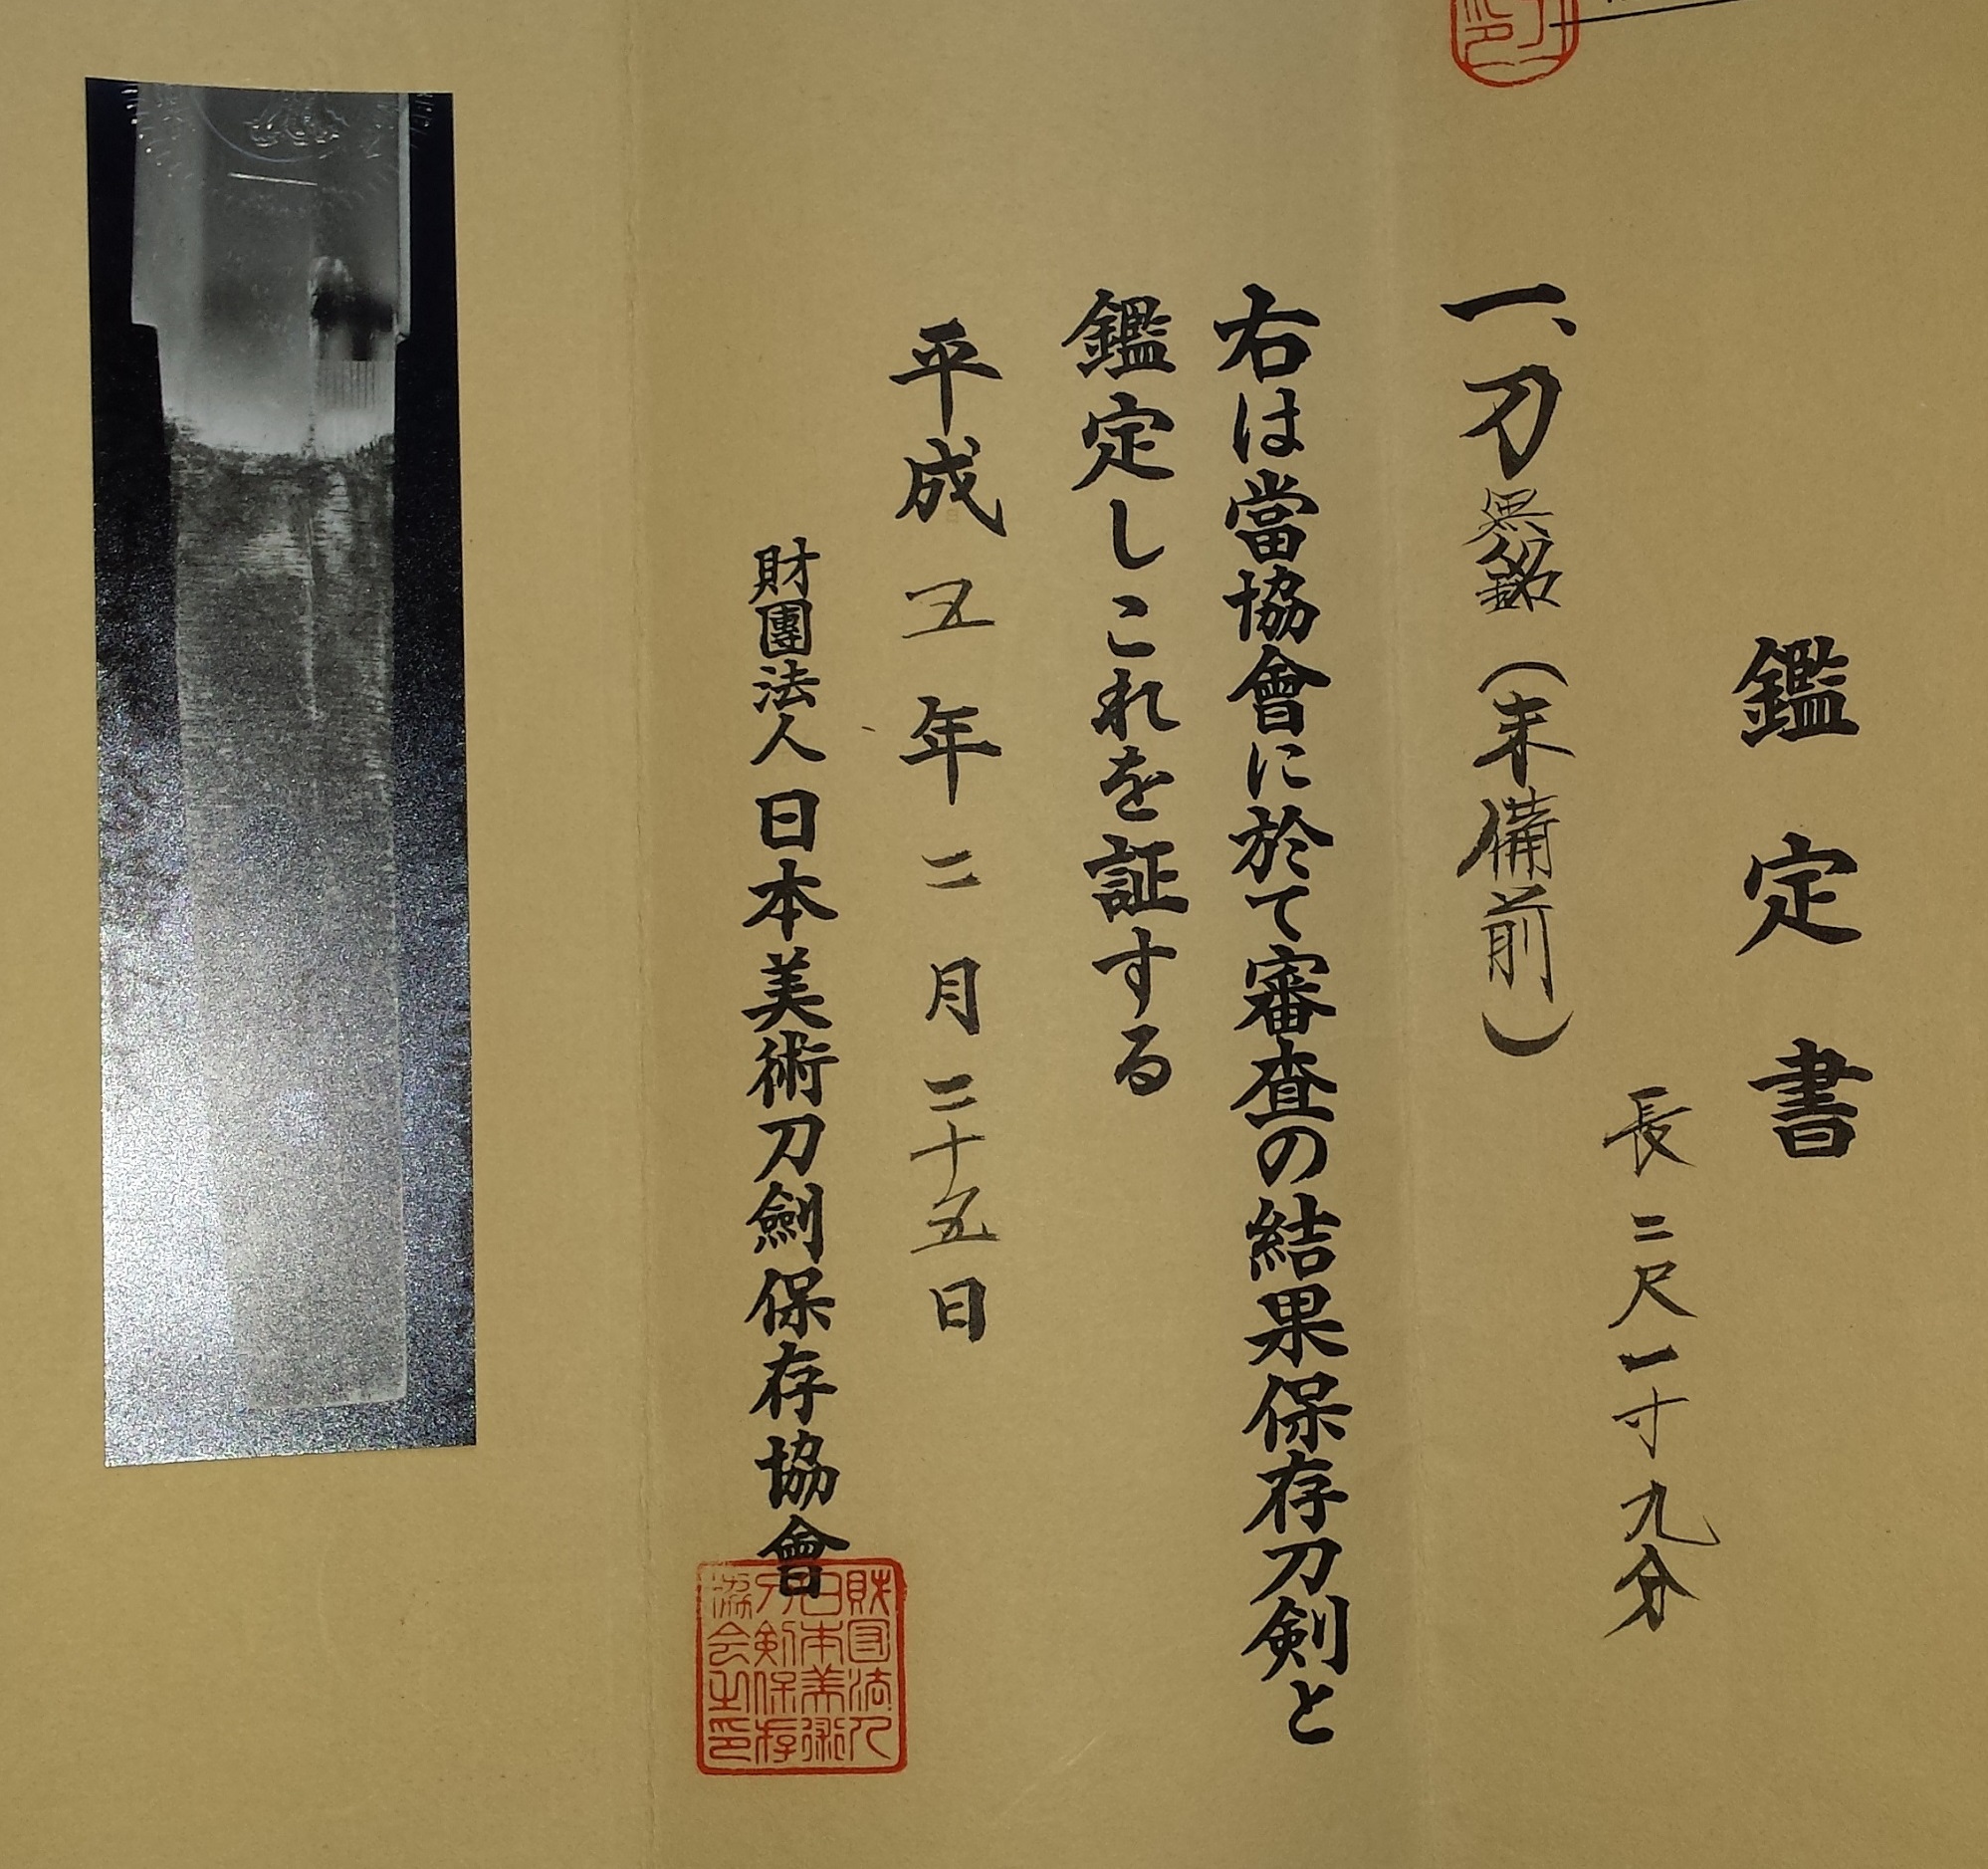 鑑定書
長二尺一寸九分
一、刀 無銘（末備前）
右は當協會に於て審査の結果保存刀剣と
鑑定しこれを証する
平成五年二月二十五日
財團法人日本美術刀劍保存協會
財団法人
日本美術
刀剣保存
協会之印